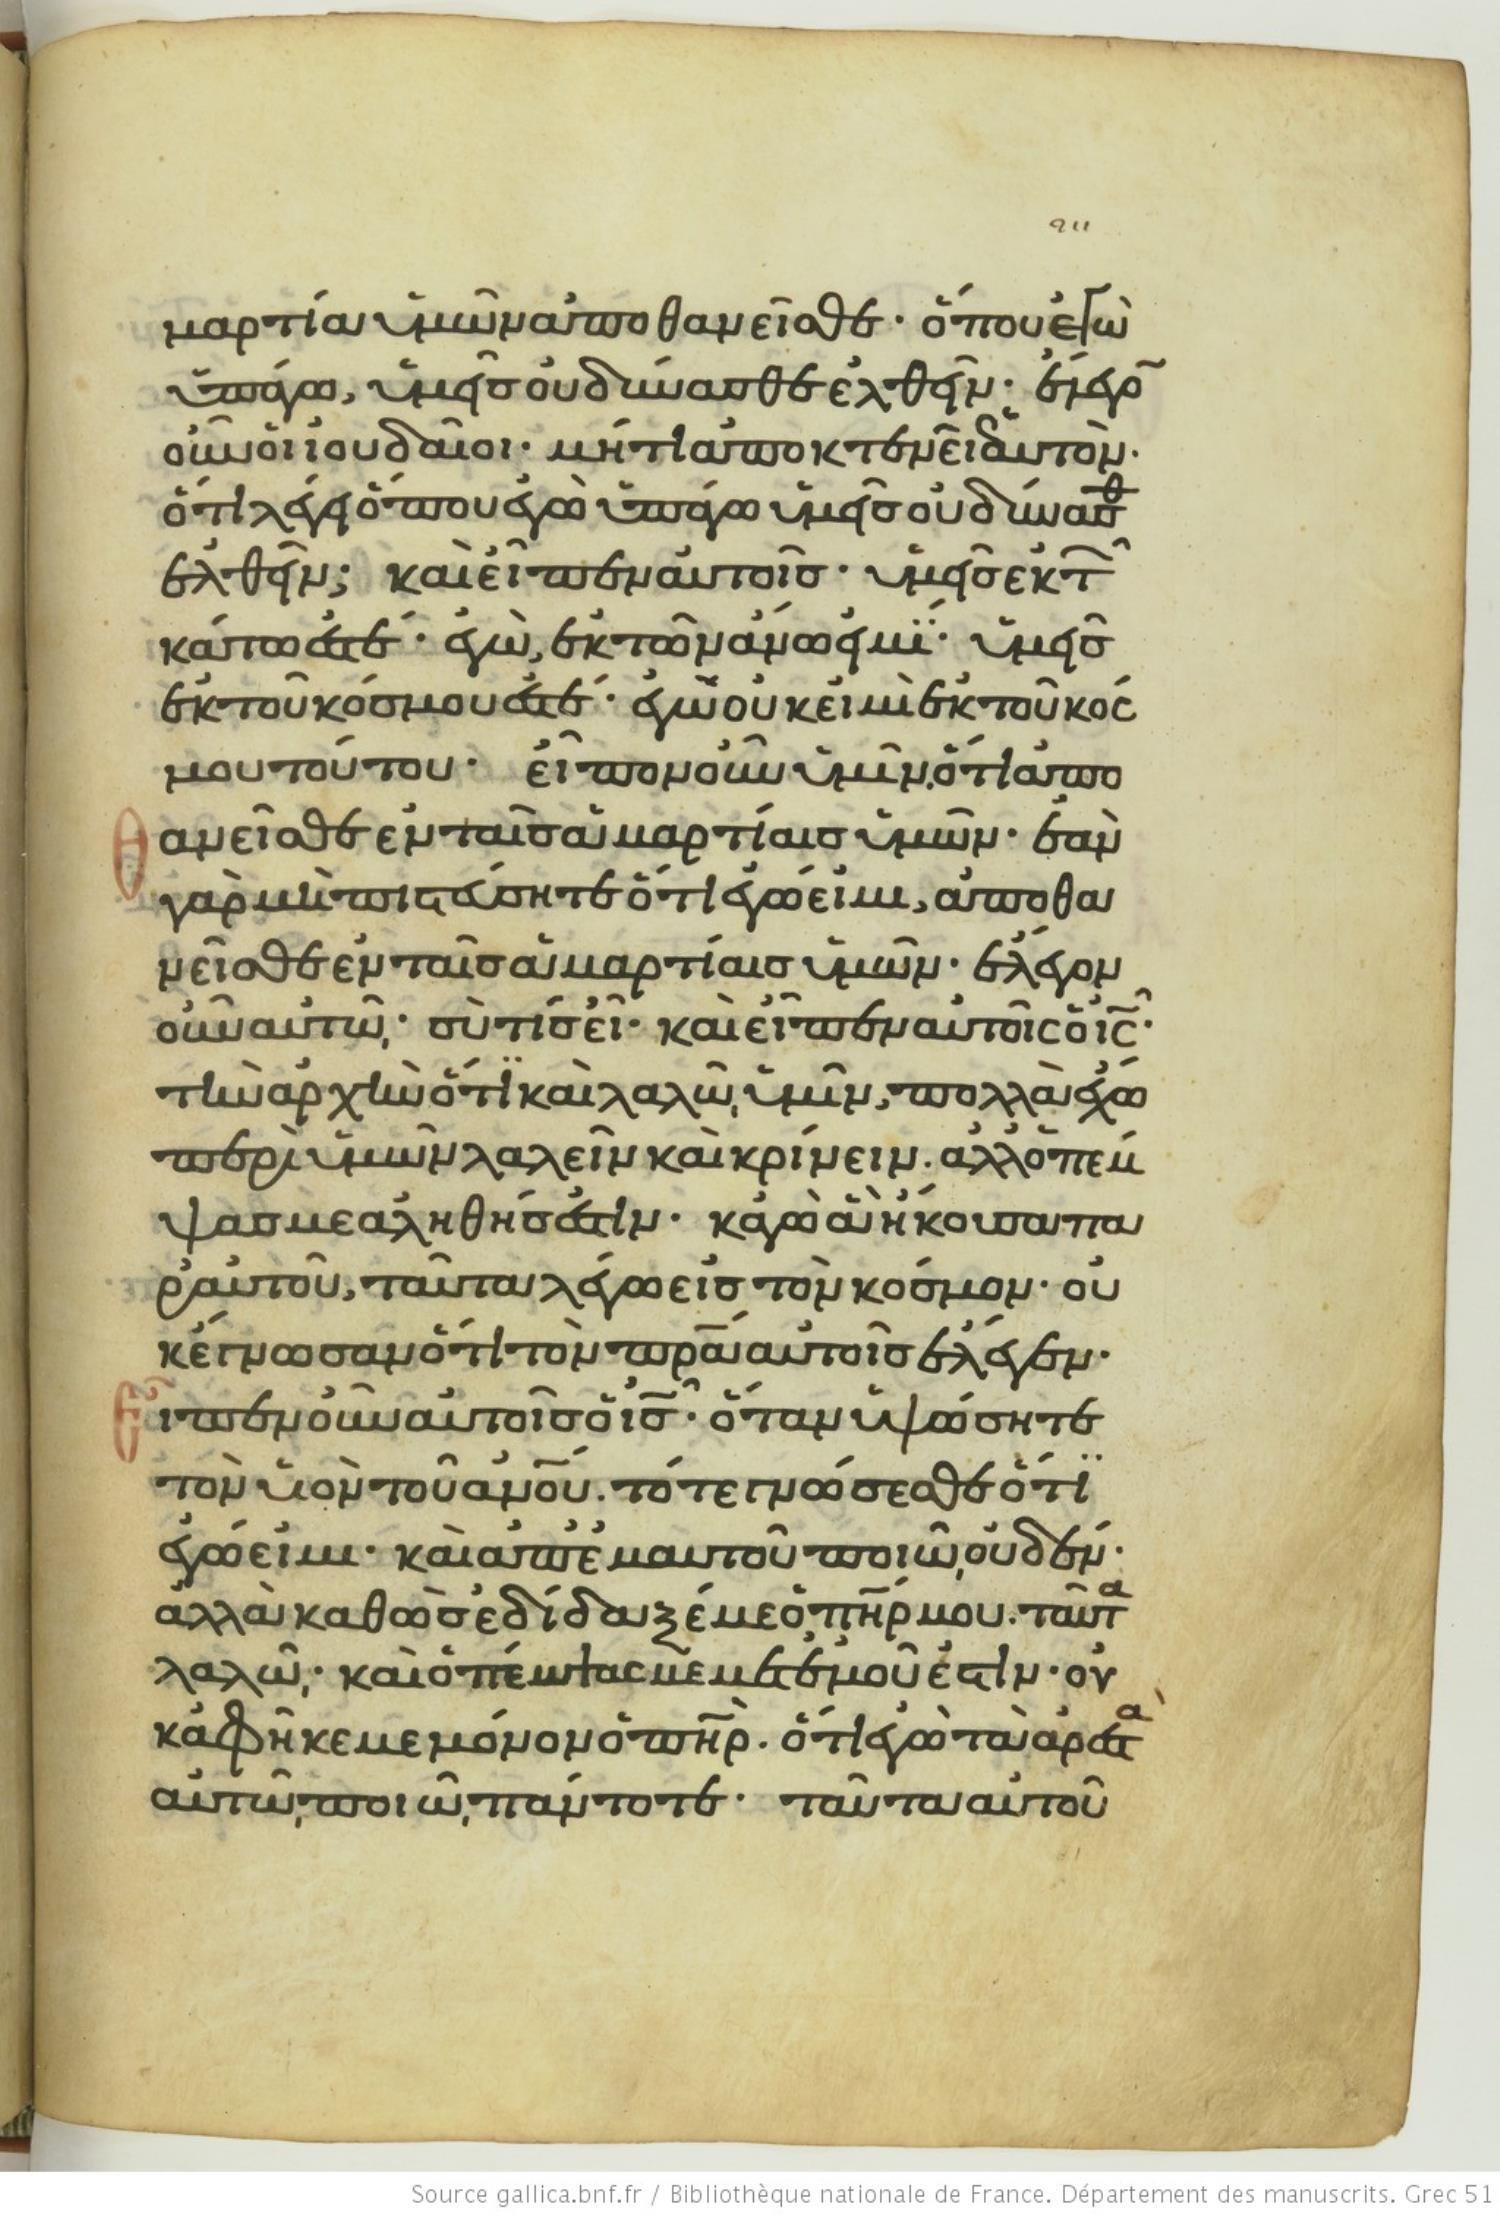 911
μαρτία ὑμῶν ἀποθανεῖσθε· ὅπου ἐγὼ
ὑπάγω, ὑμεῖς οὐ δύνασθε ἐλθεῖν· ἔλεγον
οὖν οἱ ἰουδαῖοι· μήτι ἀποκτενεῖ ἑαυτόν·
ὅτι λέγει ὅπου ἐγὼ ὑπάγω ὑμεῖς οὐ δύνασθ
ἐλθεῖν; καὶ εἶπεν αὐτοῖς· ὑμεῖς ἐκ τῶν
κάτω ἐστέ· ἐγὼ, ἐκ τῶν ἄνω εἰμϊ· ὑμεῖς
ἐκ τοῦ κόσμου ἐστέ· ἐγὼ οὐκ εἰμὶ ἐκ τοῦ κόσ
μου τούτου· εἶπον οὖν ὑμῖν, ὅτι ἀπο
θανεῖσθε ἐν ταῖς ἁμαρτίαις ὑμῶν· ἐὰν
γὰρ μὴ πιστεύσητε ὅτι ἐγώ εἰμι, ἀποθα
νεῖσθε ἐν ταῖς ἁμαρτίαις ὑμῶν· ἔλεγον
οὖν αὐτῶ· σὺ τίς εἶ· καὶ εἶπεν αὐτοῖς ὁ ις·
τὴν ἀρχὴν ὅτϊ καὶ λαλῶ ὑμῖν, πολλὰ ἔχω
περὶ ὑμῶν λαλεῖν καὶ κρίνειν. ἀλλ ὁ πέμ
ψας με ἀληθής ἐστιν· καγὼ ἃ ἤκουσα πα
ρ αὐτοῦ, ταῦτα λέγω εἰς τὸν κόσμον· οὐ
κ ἔγνωσαν ὅτι τὸν πρα αὐτοῖς ἔλεγεν·
Εἶπεν οὖν αὐτοῖς ὁ ις· ὅταν ὑψώσητε
τὸν υἱὸν τοῦ ανου. τότε γνώσεσθε ὅτϊ
ἐγώ εἰμι· καὶ ἀπ ἐμαυτοῦ ποιῶ οὐδέν·
ἀλλὰ καθὼς ἐδίδαξέ με ὁ πηρ μου. ταῦτα
λαλῶ· καὶ ὁ πέμψας με μετ ἐμοῦ ἐστιν· οὐ
κ ἀφῆκέ με μόνον ὁ πηρ. ὅτι ἐγὼ τὰ ἀρεστὰ
αὐτῶ ποιῶ πάντοτε· ταῦτα αὐτοῦ
Source gallica.bnf.fr / Bibliothèque nationale de France. Département des manuscrits. Grec 51